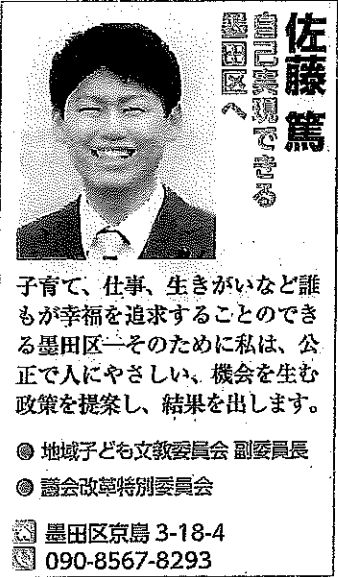 佐藤 篤
自己実現できる
墨田区へ
子育て、仕事、生きがいなど誰
もが幸福を追求することのでき
る墨田区―そのために私は、公
正で人にやさしい、機会を生む
政策を提案し、結果を出します。
◎ 地域子ども文教委員会 副委員長
◎ 議会改革特別委員会
墨田区京島 3-18-4
090-8567-8293